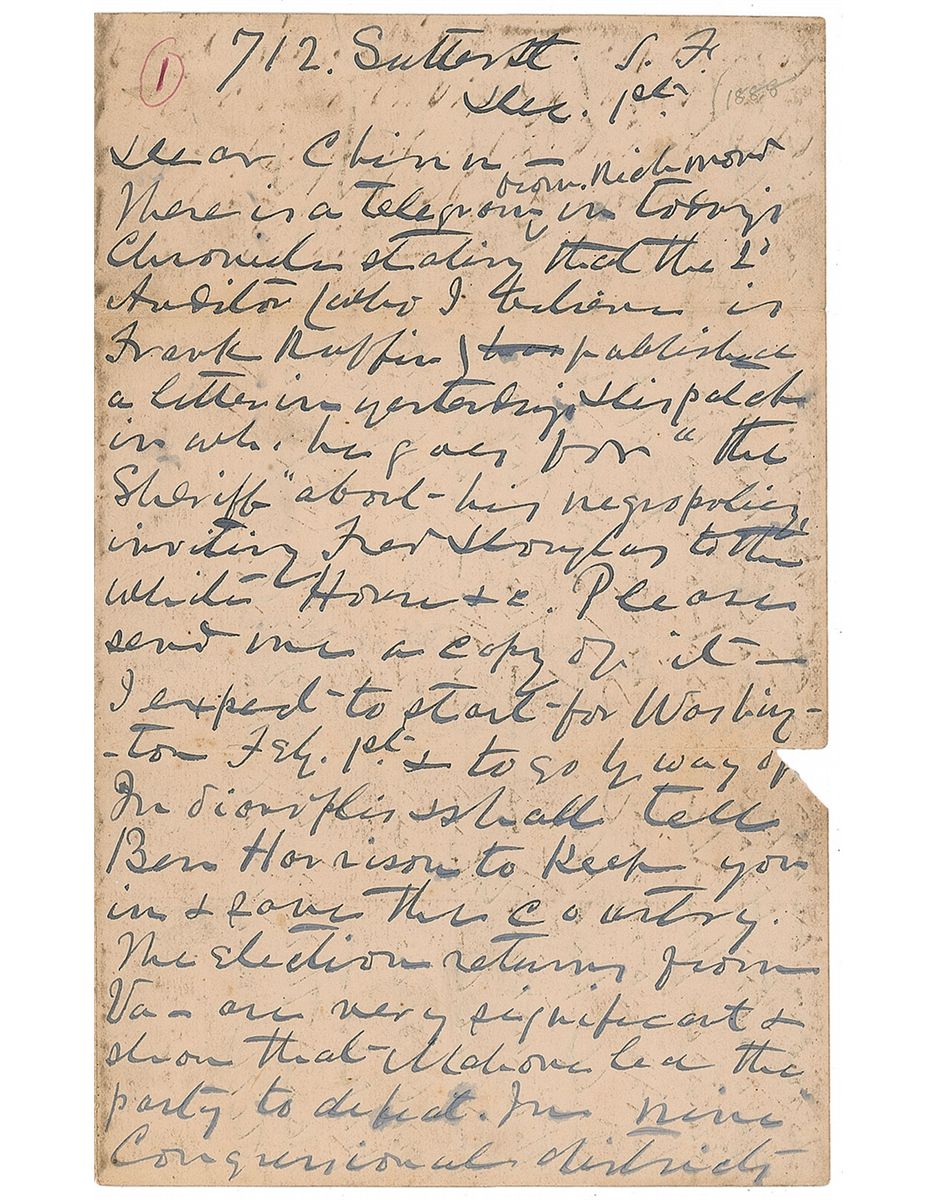 ① 712. Sutter St. S. F.
Dec. 1st. (1888
Dear Chinn —
from Richmond
There is a telegram in today's
Chronicle stating that the 2d
Auditor (who I believe is
Frank Ruffin) has published
a letter in yesterdays Dispatch
in wh. he goes for "the
Sheriff" about his negro policy,
inviting Fred Douglas to the
White House &c. Please
send me a copy of it —
I expect to start for Washing-
-ton Feby. 1st. & to go by way of
Indianaplis & shall tell
Ben Harrison to keep you
in & save the country.
The Election returns from
Va — are very significant &
show that Mahone led the
party to defeat. In nine
Congressional districts